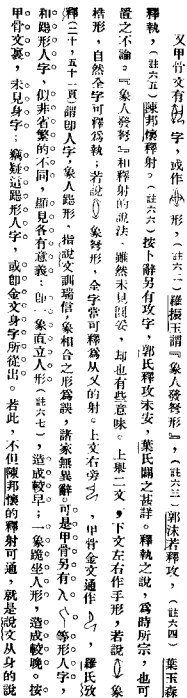 又甲骨文有字，或作形，（註六二）羅振玉謂『象人發弩形』，（註六三）郭沫若釋攻，（註六四）葉玉森
釋執，（註六五）陳邦懷釋射。（註六六）按卜辭另有攻字，郭氏釋攻未安，葉氏闢之甚詳。釋執之說，爲時所宗，也可
置之不論。『象人發弩』和釋射的說法，雖然未見閎妥，却也有些意味。上舉二文，下文左右作手形，若說象
桎形，自然全字可釋爲執；若說象弩形，全字當可釋爲从又的射。上文右旁，甲骨金文通作，羅氏攷
釋（二十，五十一頁）謂卽人字，象人跽形，指說文訓瑞信，象相合之形爲誤，諸家無異辭。可是甲骨另有等形人字，
和跽形人字，似非省繁的不同，顯見各有意義：卽一象直立人形（註六七），造成較早；一象跪坐人形，造成較晚。按
甲骨文裏，未見身字；竊疑這跽形人字，或卽金文身字所從出。若此，不但陳邦懷的釋射可通，就是說文从身的說